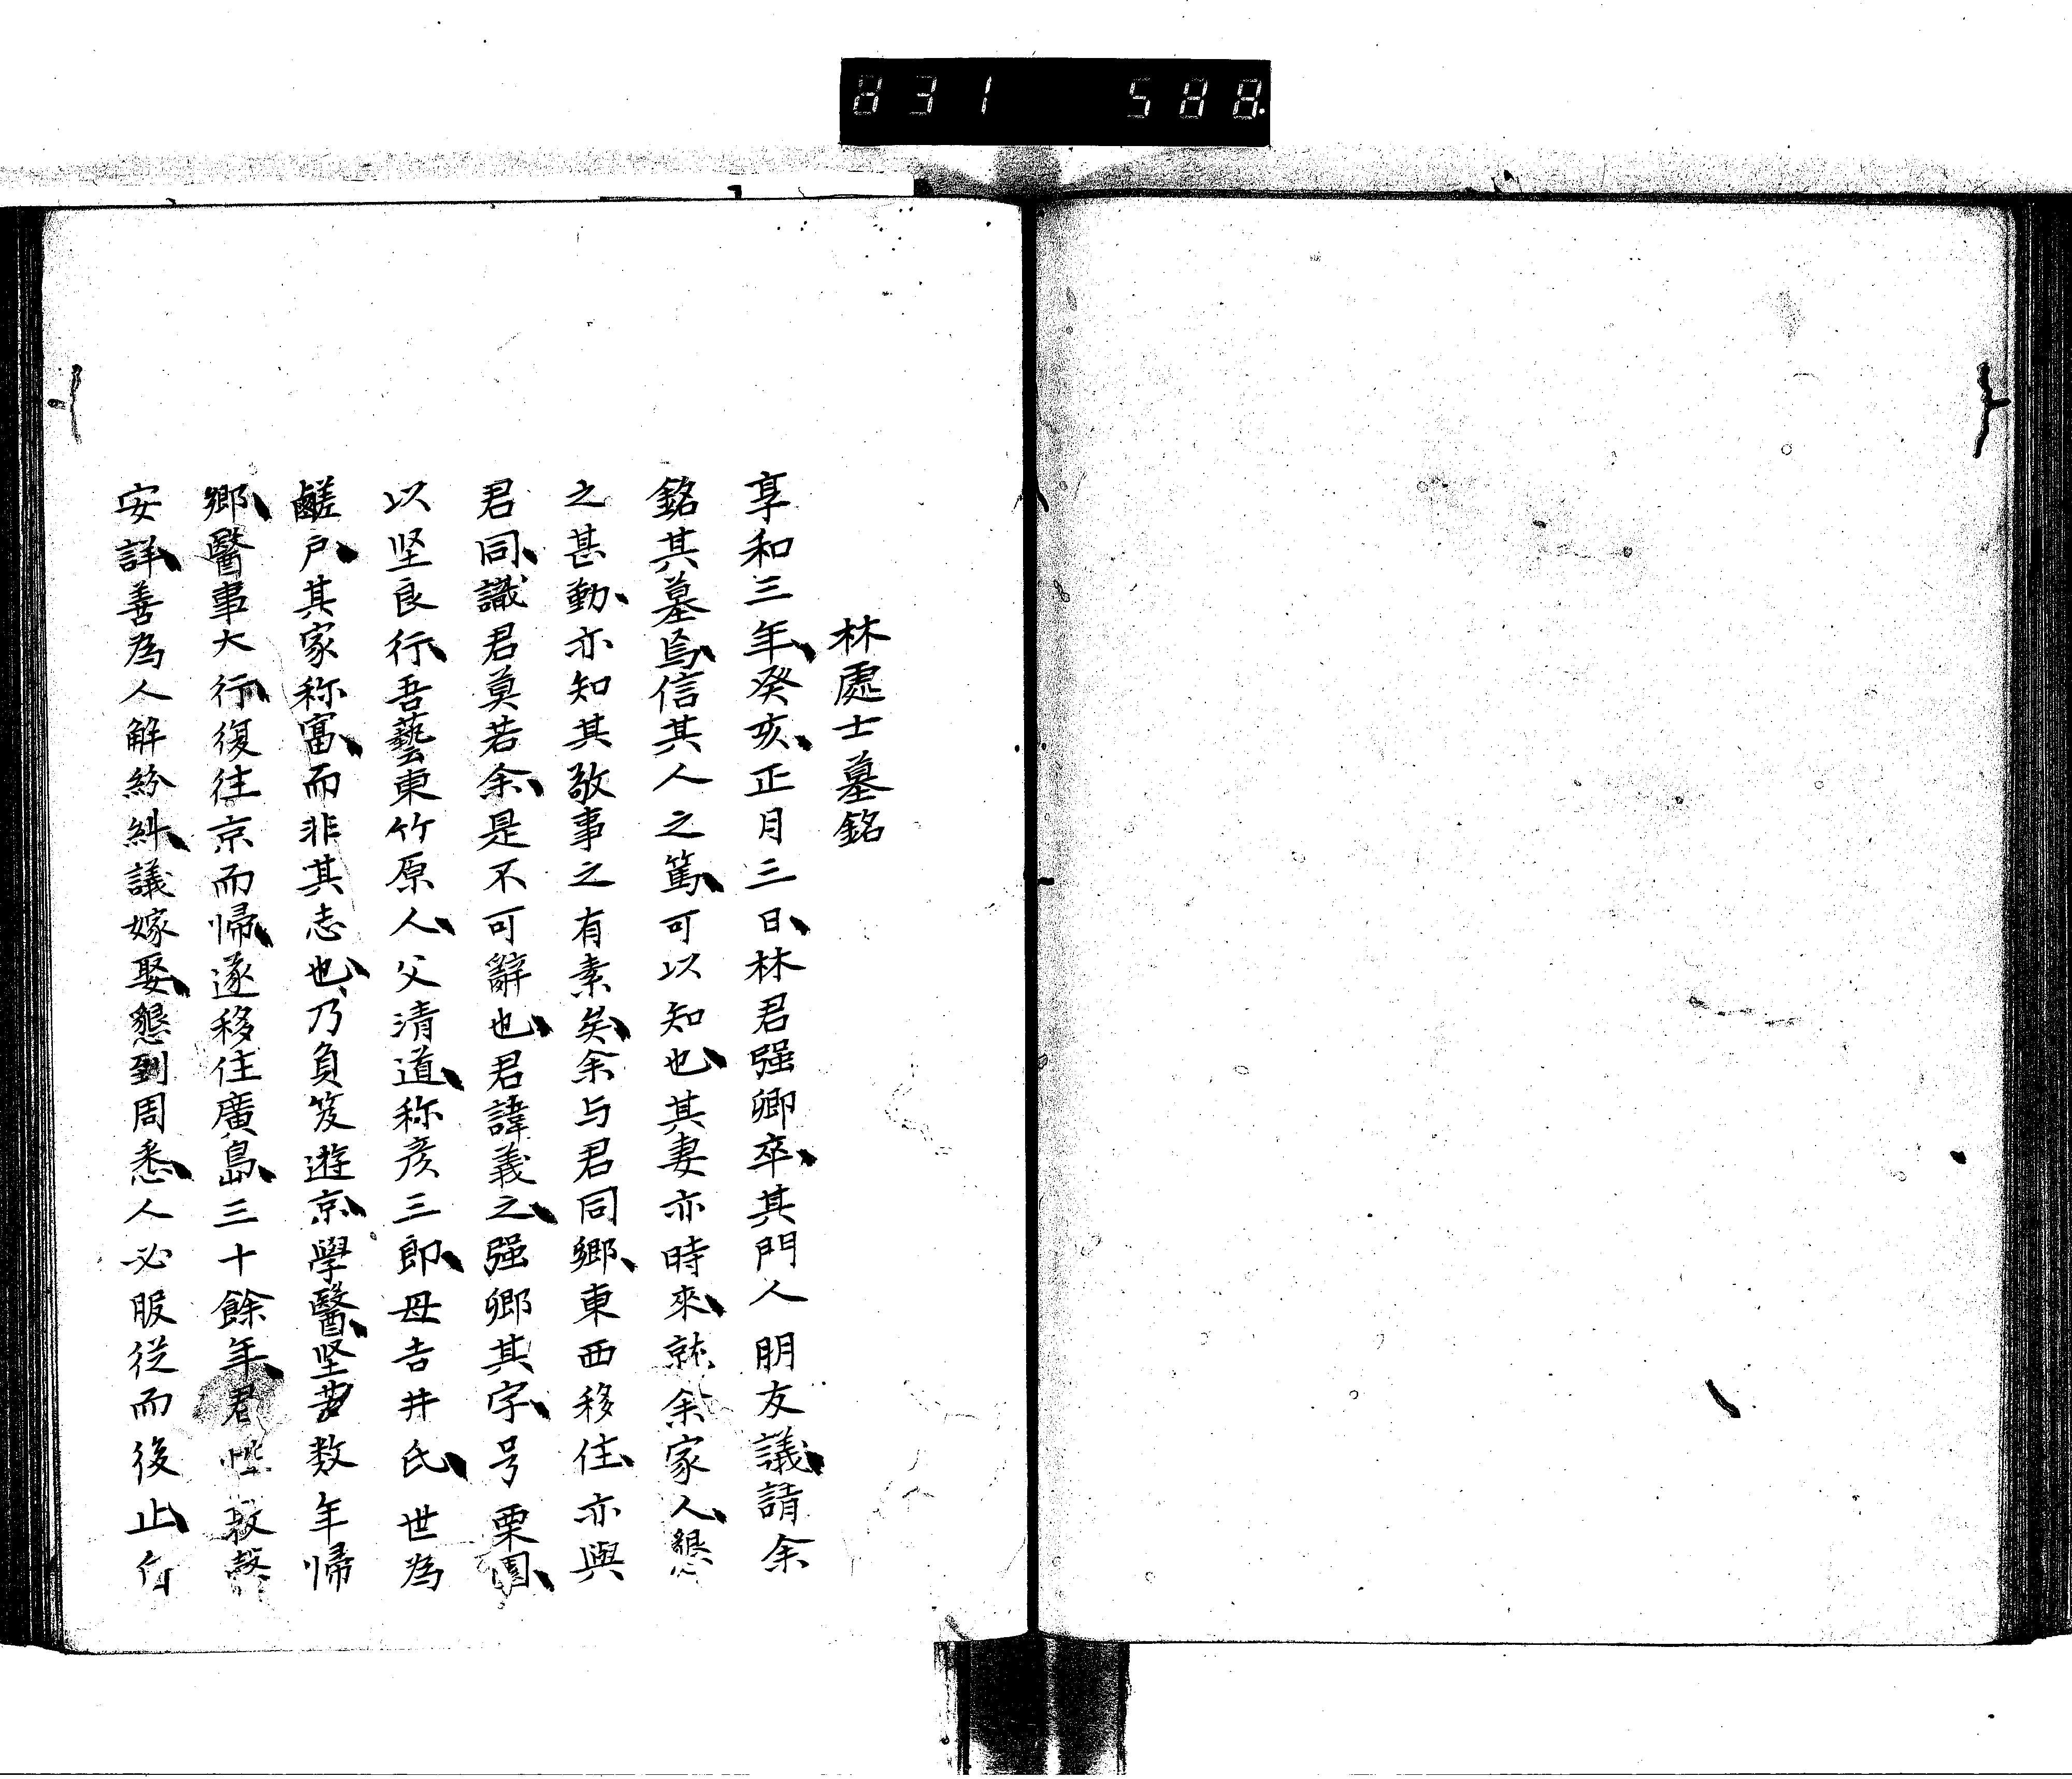 831 588
林處士墓銘
享和三年、癸亥、正月三日、林君强卿卒、其門人朋友議、請余
銘其墓焉、信其人之篤、可以知也、其妻亦時來、就余家人、懇
之甚勤、亦知其敬事之有素矣、余与君同郷、東西移住、亦與
君同、識君莫若余、是不可辭也、君諱義之、强卿其字、号栗園、
以坚良行、吾藝東竹原人、父清道、称彦三郎、母吉井氏、世為
鹺戸、其家称富、而非其志也、乃負笈遊京、學醫、坚苦数年帰
郷、醫事大行、復往京而帰、遂移住廣島、三十餘年、君性
安詳、善為人解紛糾、議嫁娶、懇到周悉、人必服從而後止、